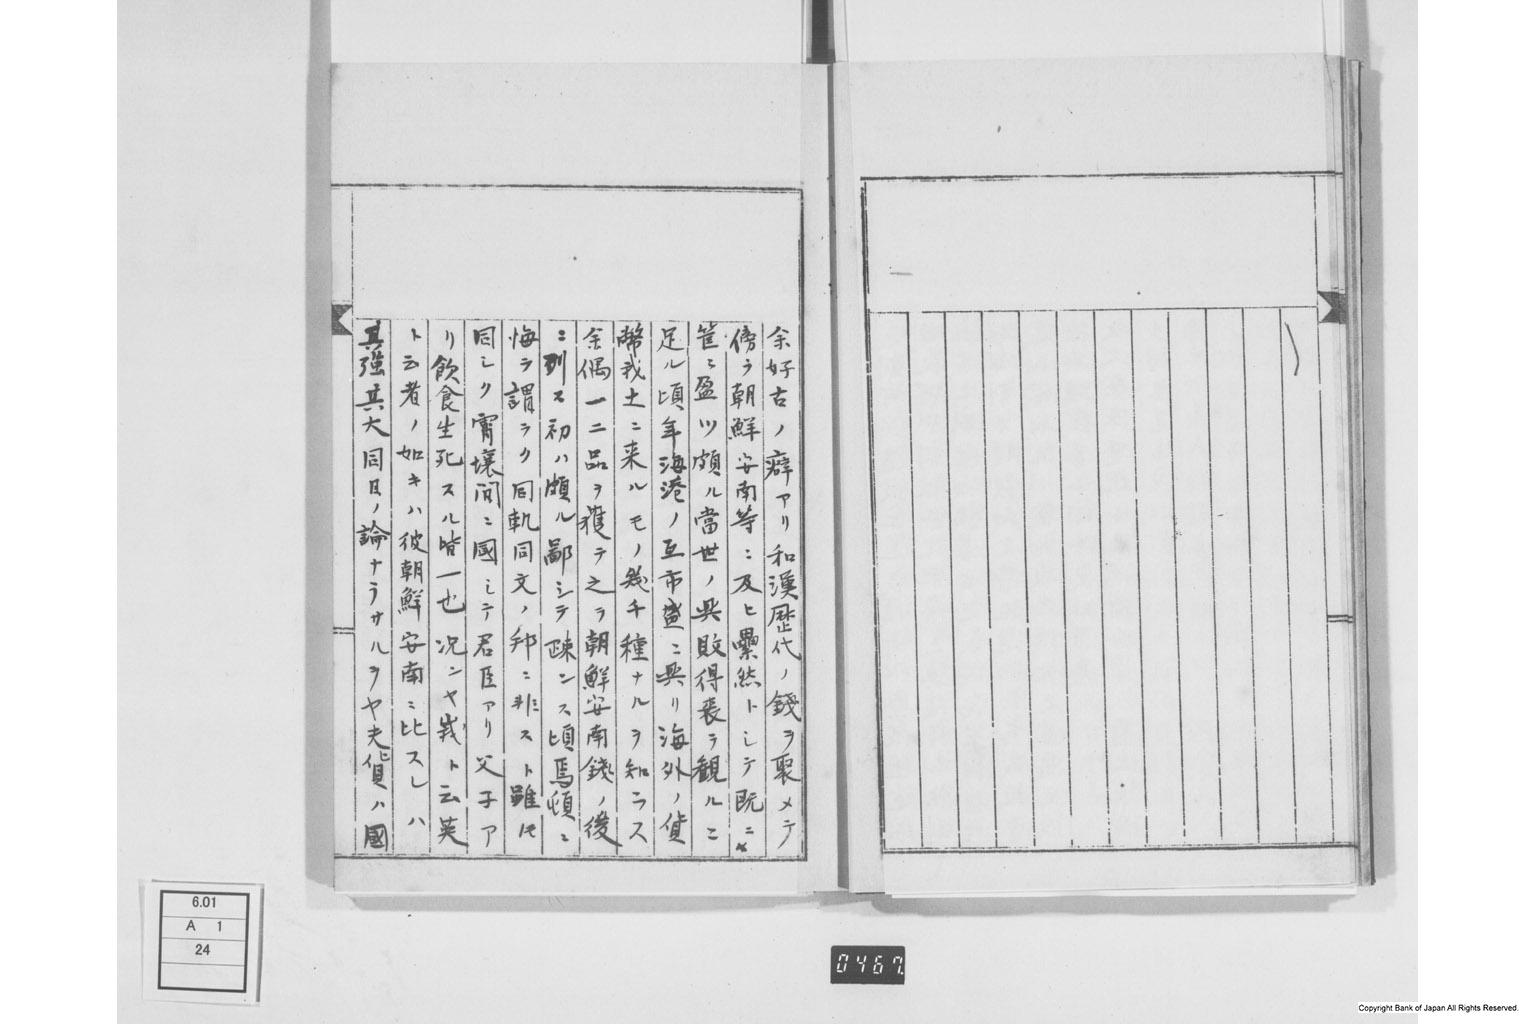 余好古ノ癖アリ和漢歴代ノ錢ヲ聚メテ
傍ラ朝鮮安南等ニ及ヒ纍然トシテ既ニ
筐ニ盈ツ頗ル當世ノ興敗得喪ヲ観ルニ
足ル頃年海港ノ互市盛ニ興リ海外ノ貨
幣我土ニ来ルモノ幾千種ナルヲ知ラス
余偶一二品ヲ獲テ之ヲ朝鮮安南錢ノ後
ニ列ス初ハ頗ル鄙シテ疎ンス頃焉頓ニ
悔ラ謂ラク同軌同文ノ邦ニ非スト雖モ
同シク霄壤間ニ國シテ君臣アリ父子ア
リ飲食生死スル皆一也況ンヤ我ト云英
ト云者ノ如キハ彼朝鮮安南ニ比スレハ
其強其大同日ノ論ナラサルヲヤ夫貨ハ國
6.01
A 1
24
0467
Copyright Bank of Japan All Rights Reserved.